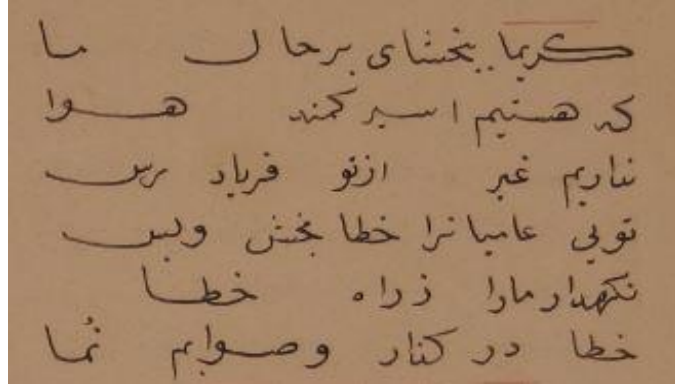 کریما ببخشای برحال ما
که هستیم اسیر کمند هوا
نداریم غیر ازتو فریاد رس
توبی عاصیانرا خطا بخش وبس
نکهدار مارا زراه خطا
خطا در کذار وصوابم نُما